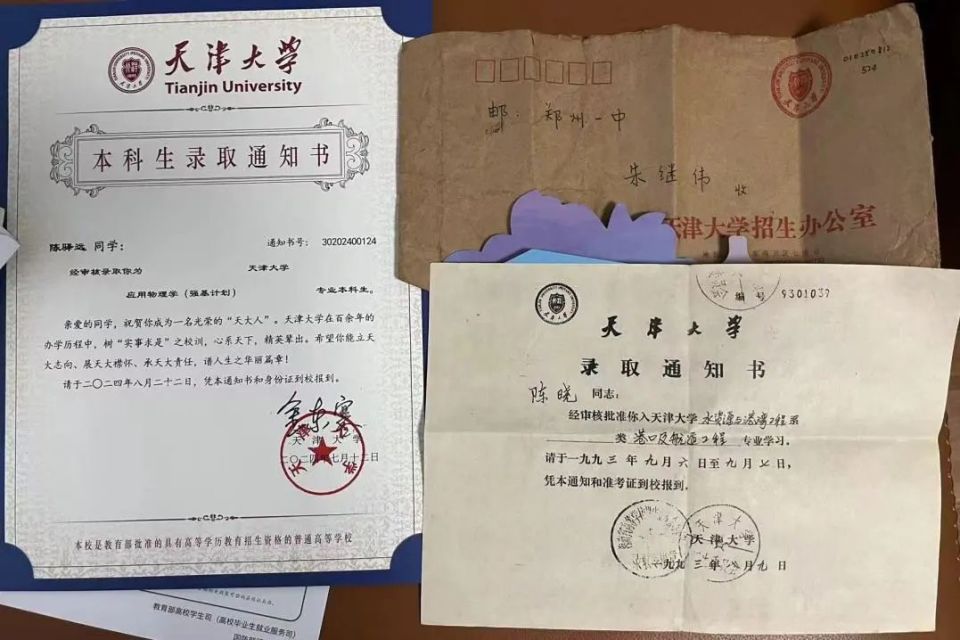 天津大学
Tianjin University
本科生录取通知书
陈驿远 同学： 通知书号： 30202400124
经审核录取你为 天津大学
应用物理学（强基计划） 专业本科生。
亲爱的同学，祝贺你成为一名光荣的“天大人”。天津大学在百余年的
办学历程中，树“实事求是”之校训，心系天下，精英辈出。希望你能立天
大志向、展天大襟怀、承天大责任，谱人生之华丽篇章！
请于二〇二四年八月二十二日，凭本通知书和身份证到校报到。
天津大学
二〇二四年七月十二日
本校是教育部批准的具有高等学历教育招生资格的普通高等学校
教育部高校学生司（高校毕业生就业服务司）
邮： 郑州一中
朱继伟 收
天津大学招生办公室
编号 9301037
天津大学
录取通知书
陈晓 同志：
经审核批准你入天津大学 水资源与港湾工程 系
类 港口及航道工程 专业学习。
请于一九九三年九月六日至九月七日，
凭本通知和准考证到校报到.
天津大学
一九九三年八月九日